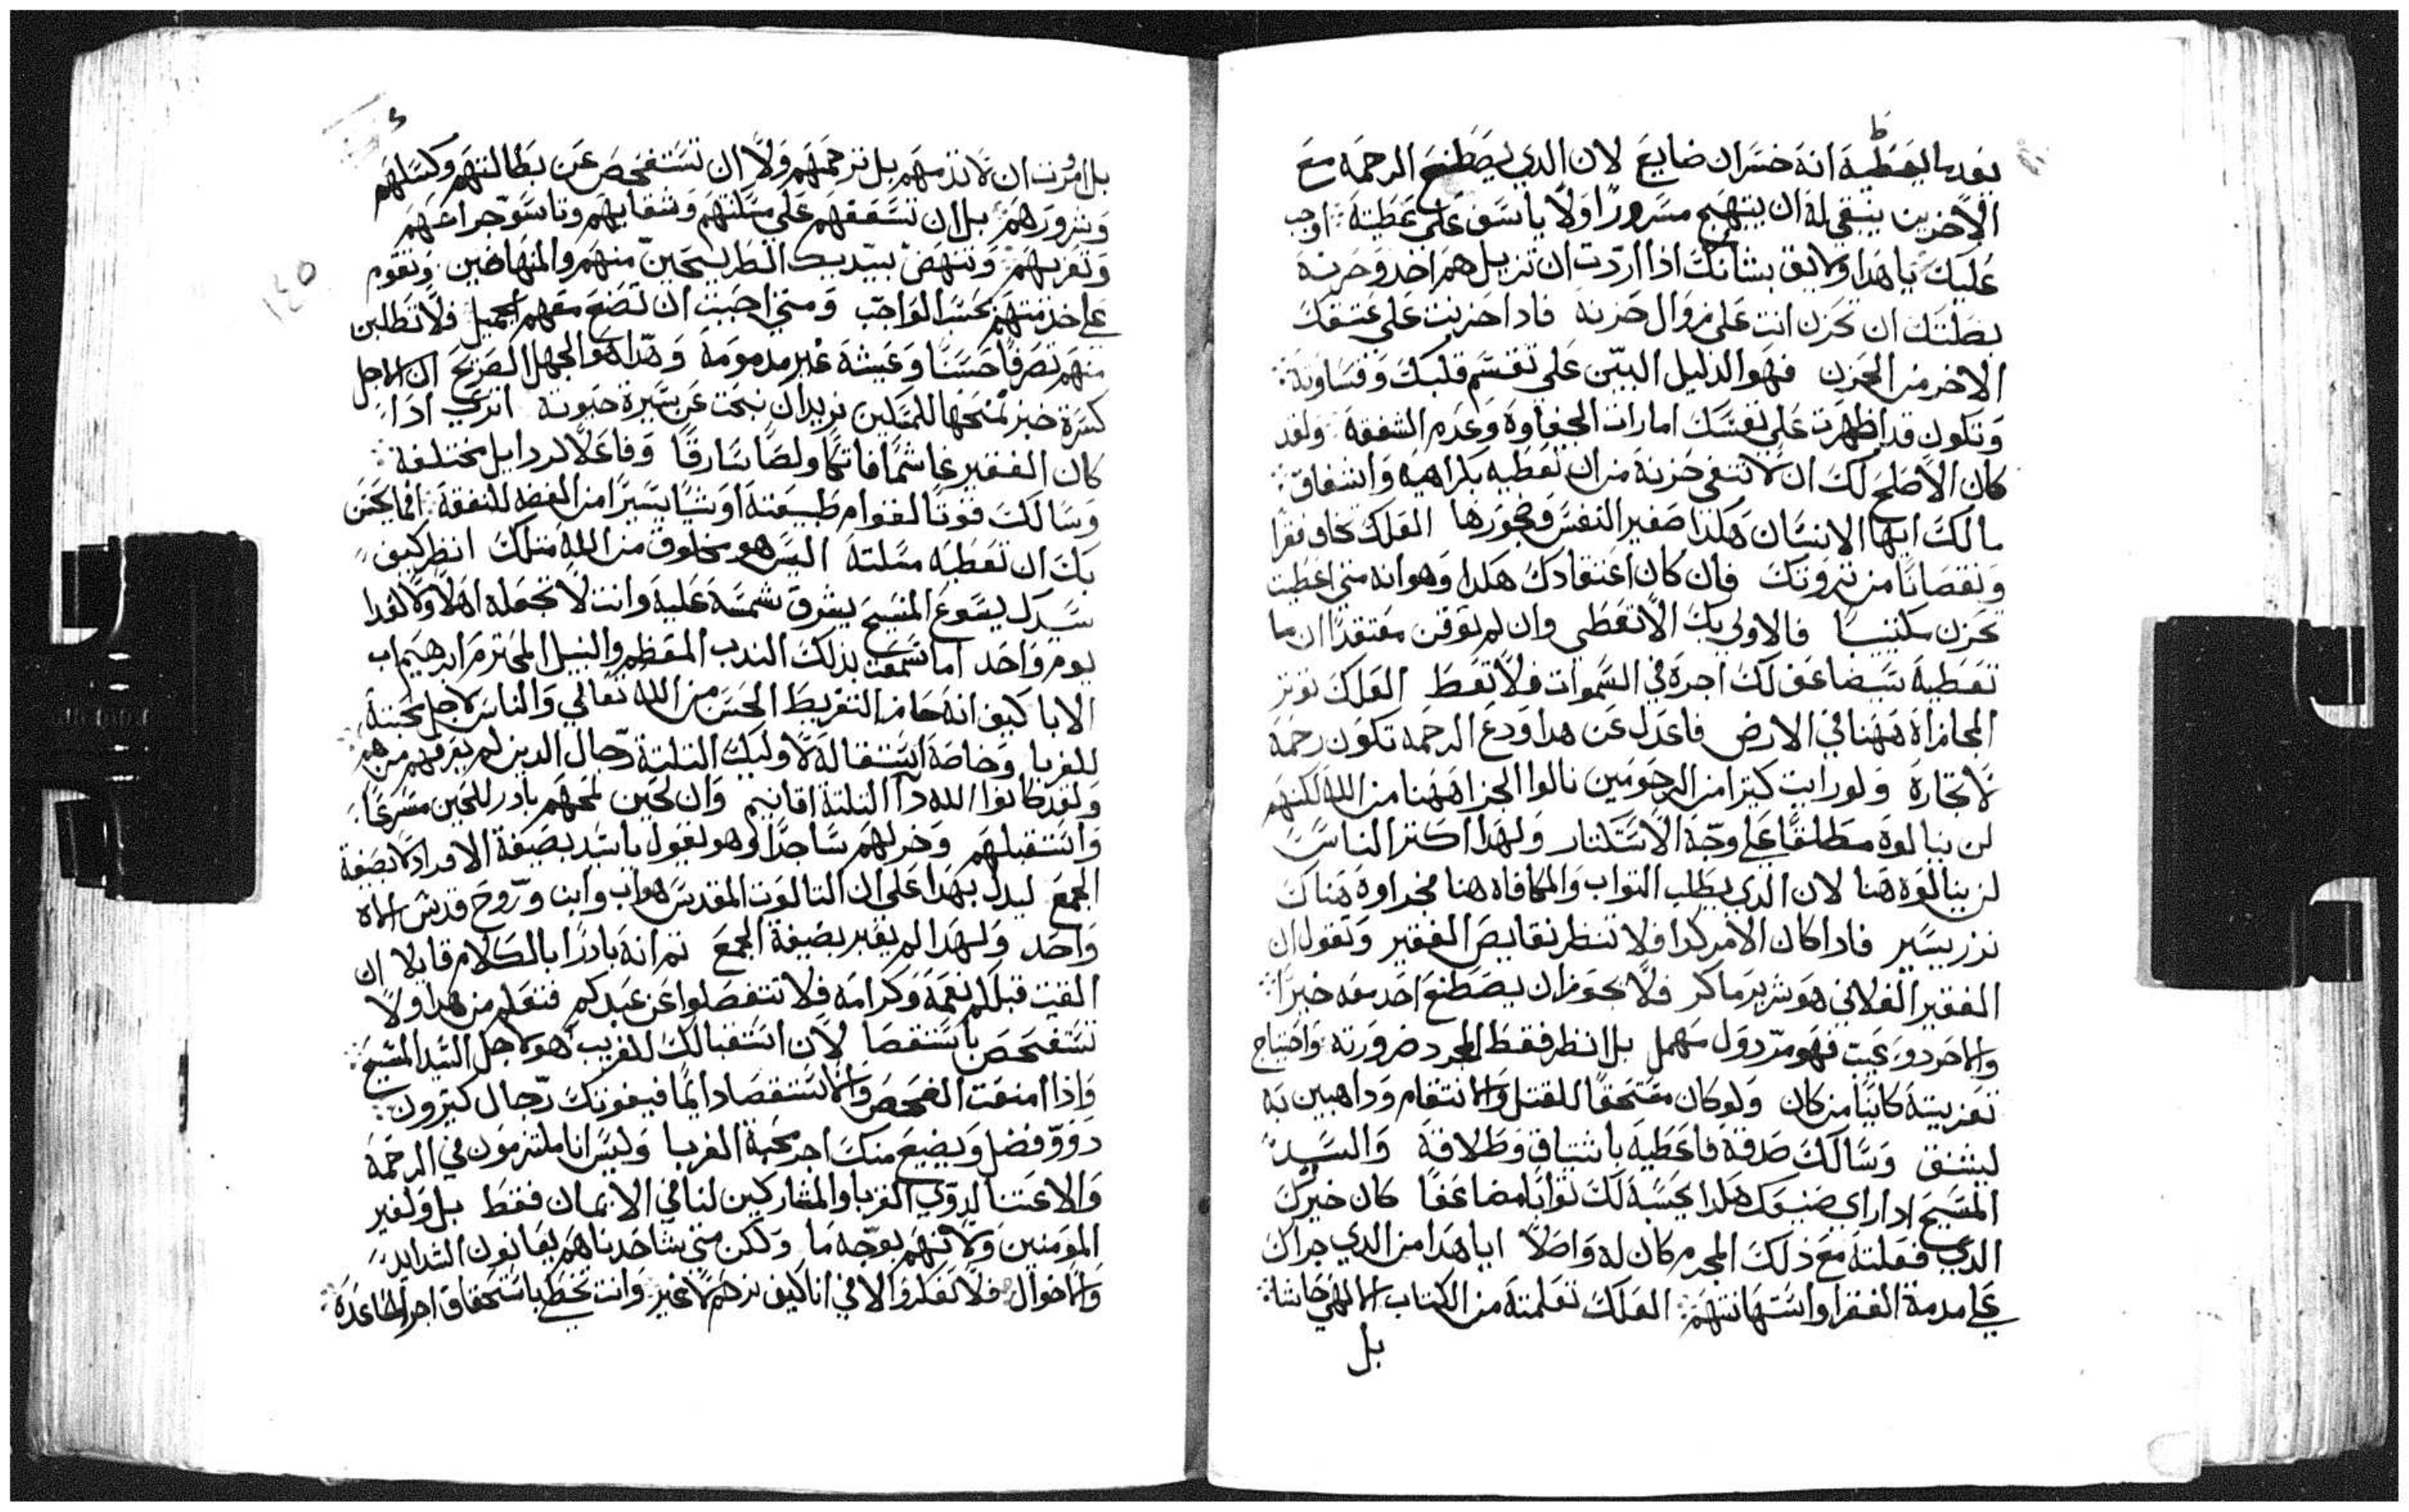 يعد ما يعطيه انه خسران ضايع لان الدي يصطنع الرحمه مع
الاخرين ينبغي له ان يبتهج مسرورًا ولا ياسف على عطيته اوجب
عليك يا هدا ولايق بشانك ادا اردت ان تزيل هم اخد وحزنه
بصلتك ان تحزن انت على زوال حزنه فادا حزنت على عتقك
الاخر من الحزن فهو الدليل البيّن على تقسّم قلبك وقساوته
وتكون قد اظهرت على نفسك امارات الجفاوة وعدم الشفقه ولقد
كان الاصلح لك ان لا تنفي حزنه من ان تعطيه بكراهيه واشفاق
مالك ايها الانسان هكدا صغير النفس وضجورها العلك تخاف فقرا
ونقصانًا من تروتك فان كان اعتقادك هكدا وهو انه متي اعطيت
تحزن مكتيبًا فالاولي بك الا تعطي وان لم توقن معتقدًا ان ما
تعطيه سيضاعف لك اجره في السموات فلا تعط العلك توتر
المجازاة ههنا في الارض فاعدل عن هدا ودع الرحمه تكون رحمه
لا تجارة ولو رايت كتيرا من المرحومين نالوا الجزا ههنا من الله لكنهم
لن ينالوه مطلقًا على وجّه الاستكتار ولهدا اكتر الناس
لن ينالوه هنا لان الدي يطلب التواب والمكافاه هنا فجزاوه هناك
نزر يسير فادا كان الامر كدا فلا تنظر نقايص الفقير وتقول ان
الفقير الفلاني هو شرير ماكر فلا يجوز ان يصطنع احد معه خيرًا
والاخر دو عيب فهو مرّدول مهمل بل انظر فقط لمجرد ضرورته واحتياج
تعزيته كاينًا من كان ولو كان مستحقًا للقتل والانتقام وداهبين به
ليشنق وسالك صدقه فاعطيه باشتياق وطلاقة والسيد
المسيح ادا راي صنيعك هكدا يحسبه لك توابًا مضاعفًا كان خيرك
الدي فعلته مع ذلك المجرم كان له واصلاً ايا هدا من الدي جراك
على مدمة الفقرا واستهانتهم العلك تعلمته من الكتاب الالهي حاشا
بل
بل امُرت ان لا تذمهم بل ترحمهم ولا ان تستفحص عن بطالتهم وكسلهم
وشرورهم بل ان تسعفهم على مسكنتهم وشقايهم وتاسوّ جراحهم
وتعزيهم وتنهض بيديك الطريحين منهم والمنهاضين وتقوم
على خدمتهم بحسب الواجب ومتي احببت ان تصنع معهم الجميل فلا تطلبن
منهم تصرفًا حسنًا وعيشة غير مدمومة وهدا هو الجهل الصريح ان لاجل
كسرة خبز تمنحها للمتكدين تريد ان تبحث عن سيرة حيوته اتري ادا
كان الفقير غاشمًا فاتكًا ولصًا سارقًا وفاعلًا لردايل مختلفة
وسالك قوتًا لقوام طبيعته او شيًا يسيرًا من الفضه للنفقة افما يحسن
بك ان تعطيه مسلته اليس هو مخلوق من الله متلك انظر كيف
سيدك يسوع المسيح يشرق شمسه عليه وانت لا تجعله اهلًا ولا لقدا
يوم واحد اما سمعت بذلك الندب المعظم والنبيل المحترم ابرهيم اب
الابا كيف انه حاز التقريظ الحسن من الله تعالي والناس لاجل محبته
للغربا وخاصة استقباله لاوليك التلتة رّجال الدين لم يعرفهم من هم
ولقد كانوا الله دا التلتة اقانيم وان لحين لمحهم بادر للحين مسرعًا
واستقبلهم وخر لهم ساجدًا وهو يقول يا سيد بصيغة الافراد لا بصيغة
الجمع ليدل بهدا على ان التالوت المقدس هو اب وابن ورّوح قدس الاه
واحد ولهدا لم يعبر بصيغة الجمع تم انه بادرًا بالكلام قايلا ان
القيت قبلكم نعمه وكرامه فلا تتفصلوا عن عبدكم فتعلم من هدا ولا
تستفحص باستقصا لان استقبالك للغريب هو لاجل السّيد المسيح
وادا امنعت الفحص والاستقصا دايمًا فيفوتك رّجال كتيرون
دوو فضل ويضيع منك اجر محبة الغربا وليس انا ملتزمون في الرحمة
والاعتنا لدوّي القربا والمشاركين لنا في الايمان فقط بل ولغير
المومنين ولا نتهم بوجّه ما ولكن متي شاهدناهم يقانون الشدايد
والاحوال فلا نفكروا الا في انا كيف نرحمهم لا غير وانت تحظي باستحقاق اجر المساعدة
١٤٥